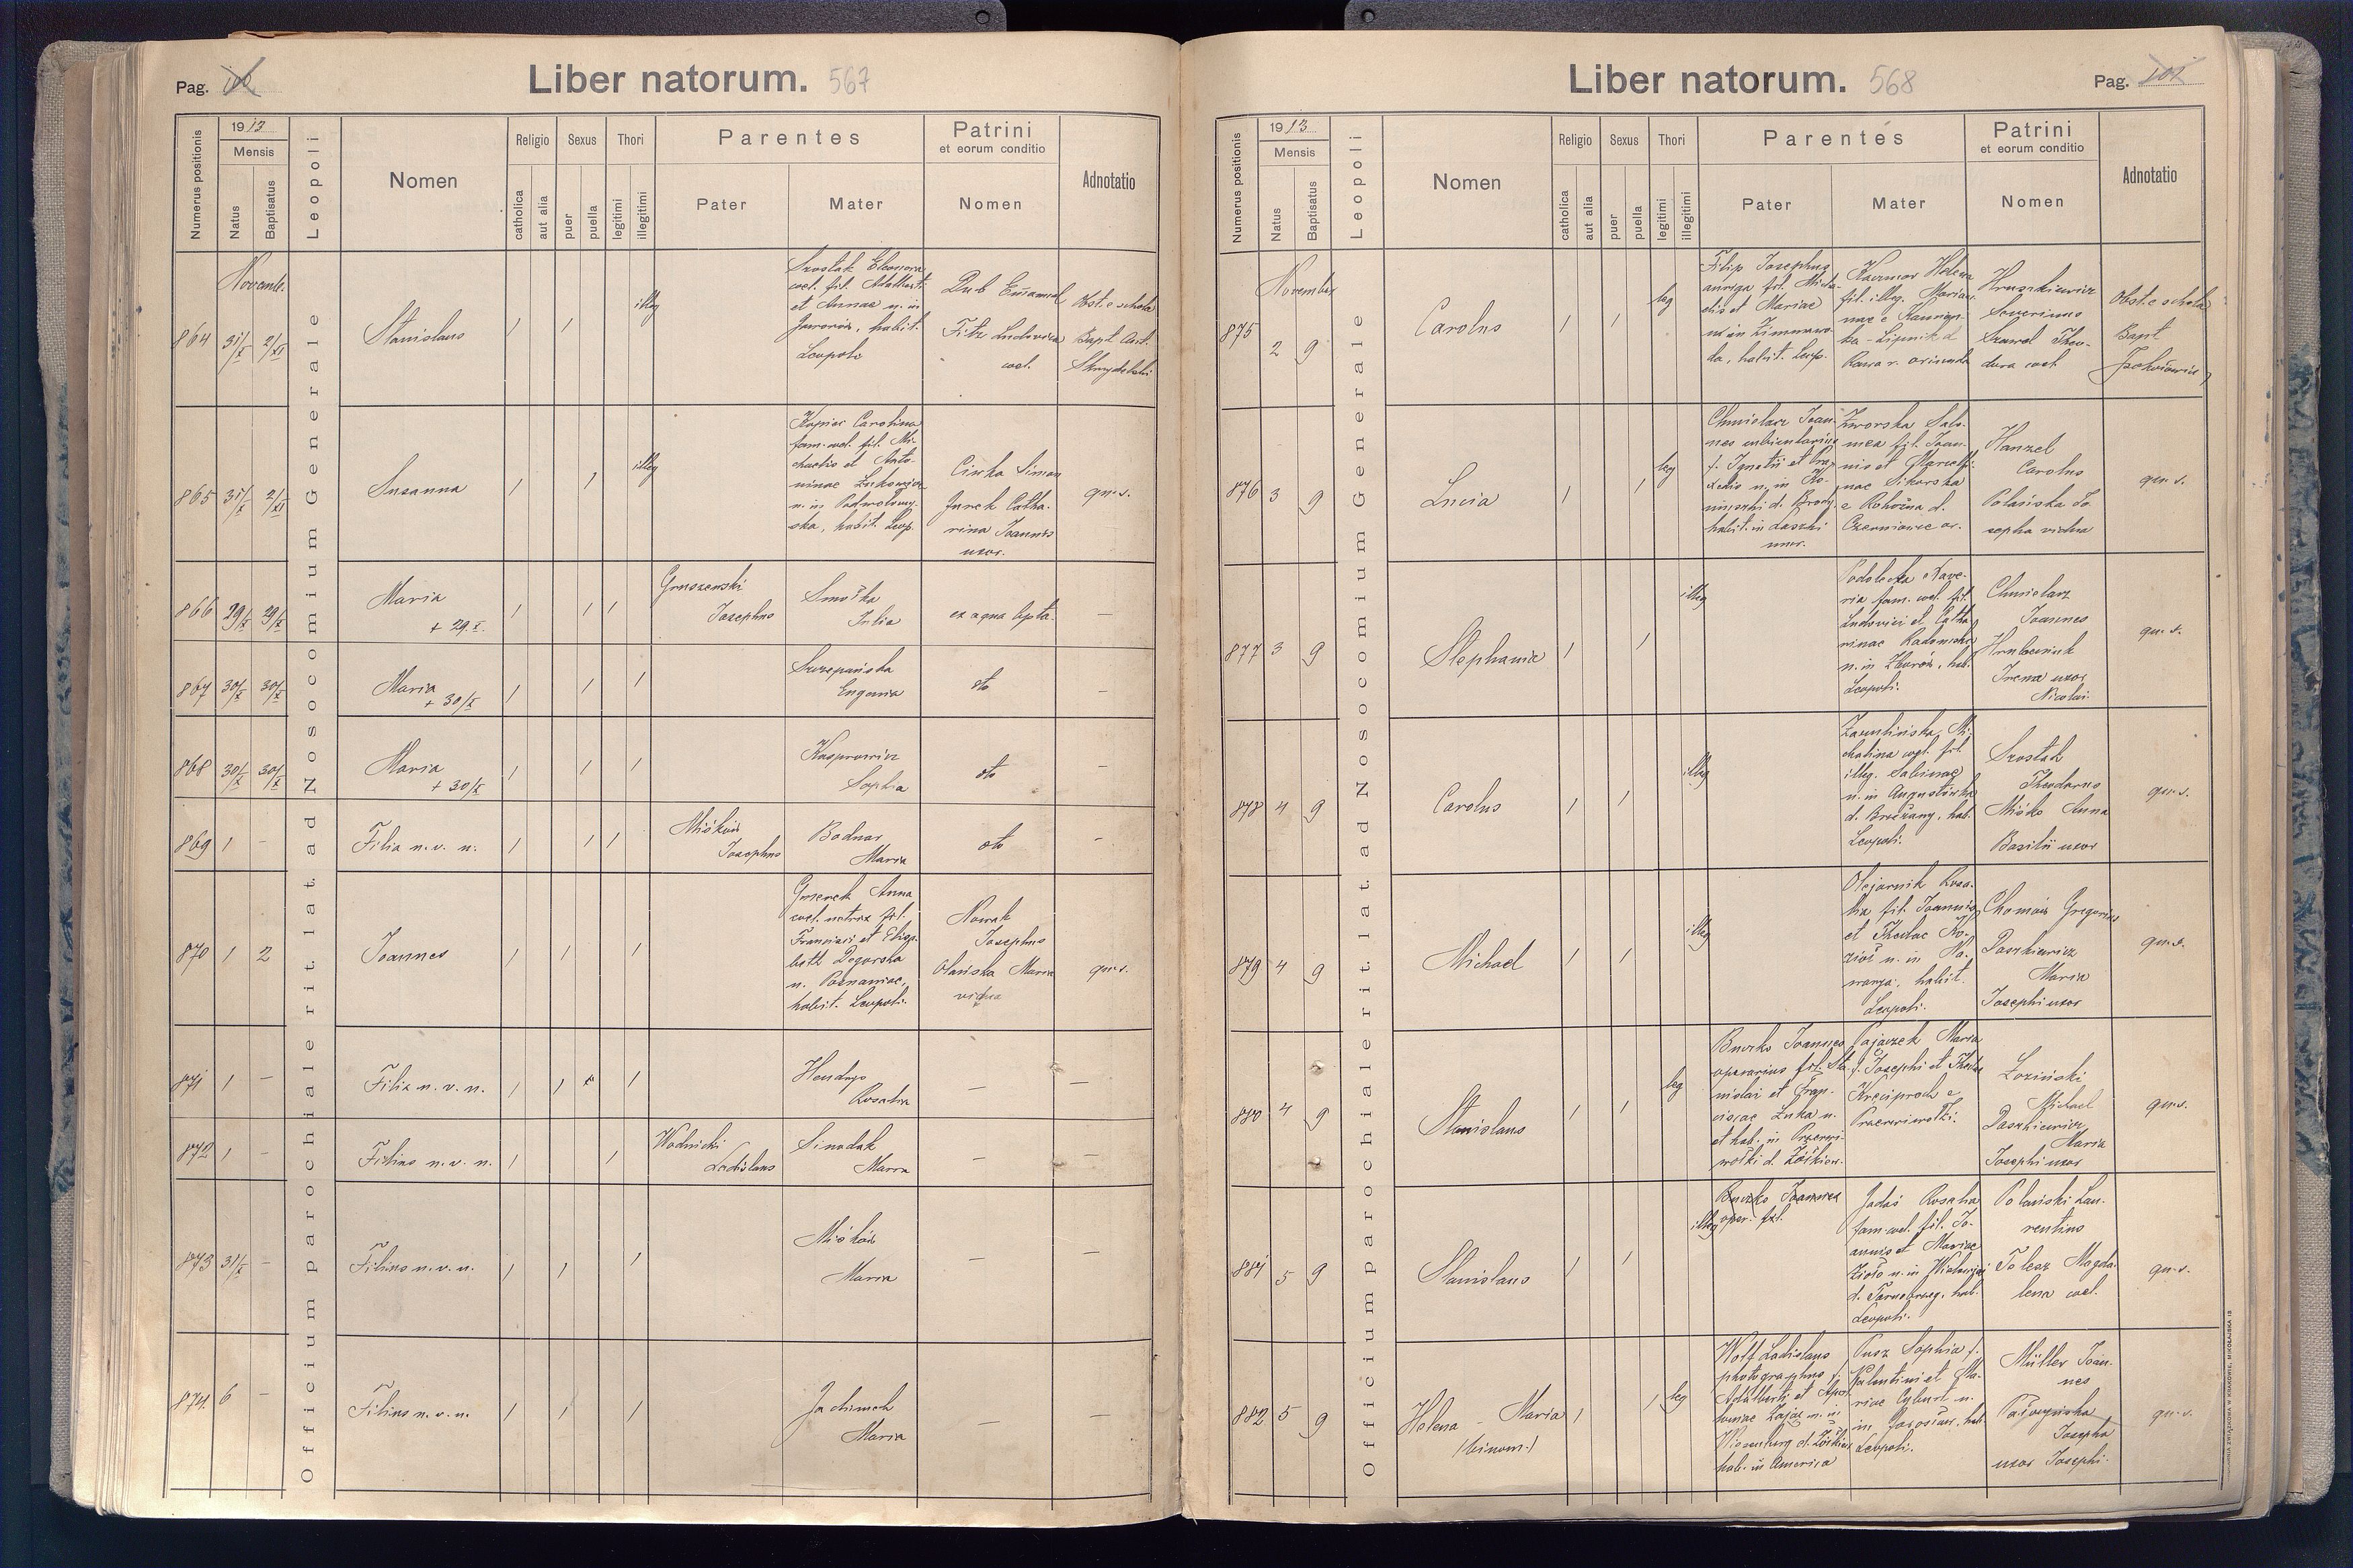 Pag. 100
Liber natorum. 567
Numerus positionis
1913
Mensis
Natus
Baptisatus
Leopoli
Nomen
Religio
catholica
aut alia
Sexus
puer
puella
Thori
legitimi
illegitimi
Parentes
Pater
Mater
Patrini
et eorum conditio
Nomen
Adnotatio
Officium parochiale rit. lat. ad Nosocomium Generale
Novemb.
864 31/X 2/XI
Stanislaus
illeg
Szostak Eleonora
cael. fil. Adalberti
et Annae n. in
Jaworów, habit.
Leopoli
Dub Emanuel
Fitz Ludovica
cael.
Obst. e schola
Bapt. Ant.
865 31/X 2/XI
Susanna
illeg
Kopiec Carolina
fam. cael. fil. Mi-
chaelis et Anto-
ninae
n. in
habit. Leop.
Ciurka Simon
Jurek Catha-
rina Joannis
uxor.
qu. s.
866 29/X 29/X
Maria
+ 29. X.
Gruszewski
Josephus
Smołka
Julia
ex aqua bpta.
—
867 30/X 30/X
Maria
+ 30/X
Szczepańska
Eugenia
dto
—
868 30/X 30/X
Maria
+ 30/X
Kasprowicz
Sophia
dto
—
869 1 -
Filia n. v. n.
Miśków
Josephus
Bodnar
Maria
dto
-
870 1 2
Joannes
Anna
Francisci et Elisa-
beth
n. Poznaniae,
habit. Leopoli.
Nowak
Josephus
Olańska Maria
vidua
qu. s.
871 1 —
Filia n. v. n.
Hendrys
Rosalia
—
—
872 1 -
Filius n. v. n.
Wodnicki
Ladislaus
Sinadak
Maria
—
—
873 31/X -
Filius n. v. n.
Miśków
Maria
—
—
874. 6 -
Filius n. v. n.
Jachimek
Maria
—
—
Liber natorum. 568
Pag. 101
Numerus positionis
1913
Mensis
Natus
Baptisatus
Leopoli
Nomen
Religio
catholica
aut alia
Sexus
puer
puella
Thori
legitimi
illegitimi
Parentes
Pater
Mater
Patrini
et eorum conditio
Nomen
Adnotatio
Officium parochiale rit. lat. ad Nosocomium Generale
November
875 2 9
Carolus
leg
Filip Josephus
auriga fil. Micha-
elis et Mariae
n. in Zimnawo-
da, habit. Leop.
Helena
fil. illeg. Marian-
nae e Kamion-
ka-Lipnik d
Rawa r. oriunda
Hruszkiewicz
Severinus
Szawel Theo-
dora cael.
Obst. e schola
Bapt
876 3 9
Lucia
leg
Chmielarz Joan-
nes cubicularius
f. Ignatii et Pra-
xedis n. in Ko-
niuszki d. Brody
habit. in Laszki
mur.
Zworska Salo-
mea fil. Joan-
nis et Marcelli-
nae Sikorska
e Rohoźna d.
Czerniowce or.
Hanzel
Carolus
Polańska Jo-
sepha vidua
qu. s.
877 3 9
Stephania
illeg
Podolecka Xave-
ria fam. cael. fil.
Ludovici et Catha-
rinae
n. in Zborów, hab.
Leopoli.
Chmielarz
Joannes
Hrubeniuk
Irena uxor
Nicolai.
qu. s.
878 4 9
Carolus
illeg
Mi-
chalina cael. fil
illeg. Sabinae
n. in Augustówka
d. Brzeżany, hab.
Leopoli.
Szostak
Theodorus
Miśko Anna
Basilii uxor
qu. s.
879 4 9
Michael
illeg
Olejarnik Rosa-
lia fil. Joannis
et Theclae Ko-
zioł n. in
habit.
Leopoli.
Chomów Gregorius
Daszkiewicz
Maria
Josephi uxor
qu. s.
880 4 9
Stanislaus
leg
Buczko Joannes
operarius fil. Sta-
nislai et Fran-
ciscae Luka n.
et hab. in Przemi-
wołki d. Żółkiew.
Pajączek Maria
f. Josephi et Theclae
Kręciproch e
Przemiwołki.
Łoziński
Michael
Daszkiewicz
Maria
Josephi uxor
qu. s.
881 5 9
Stanislaus
illeg
Buczko Joannes
oper. fil.
Jadaś Rosalia
fam. cael. fil. Jo-
annis et Mariae
Zioło n. in
d. Tarnobrzeg, hab.
Leopoli.
Polański Lau-
rentius
Tolesz Magda-
lena cael.
qu. s.
882 5 9
Helena - Maria
(binom.)
leg
Wolf Ladislaus
photographus f.
Adalberti et Apol-
loniae Zając n. in
Wiesenberg d. Żółkiew
hab. in America
Pusz Sophia f.
Valentini et Ma-
riae Cyburt n.
in Jarosław, hab.
Leopoli.
Müller Joan-
nes
Josepha
uxor Josephi.
qu. s.